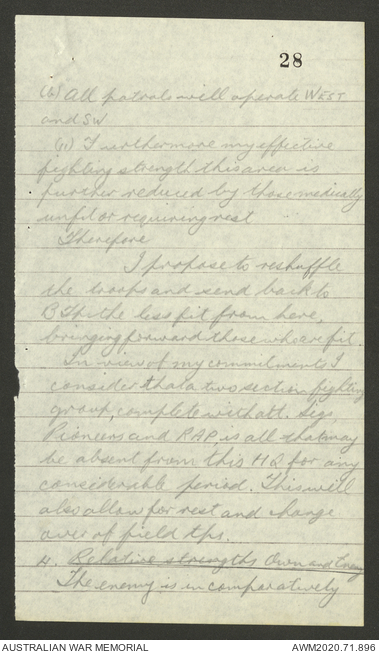 28
(b) All patrols will operate WEST
and SW
(11) Furthermore my effective
fighting strength this area is
further reduced by those medically
unfit or requiring rest
Therefore
I propose to reshuffle
the troops and send back to
the less fit from here,
bringing forward those who are fit.
In view of my commitments I
consider that a two section fighting
group, complete with att. Sigs
Pioneers and RAP, is all that may
be absent from this HQ for any
considerable period. This will
also allow for rest and change
over of field tps.
4. Relative strengths Own and Enemy
The enemy is in comparatively
AUSTRALIAN WAR MEMORIAL
AWM2020.71.896